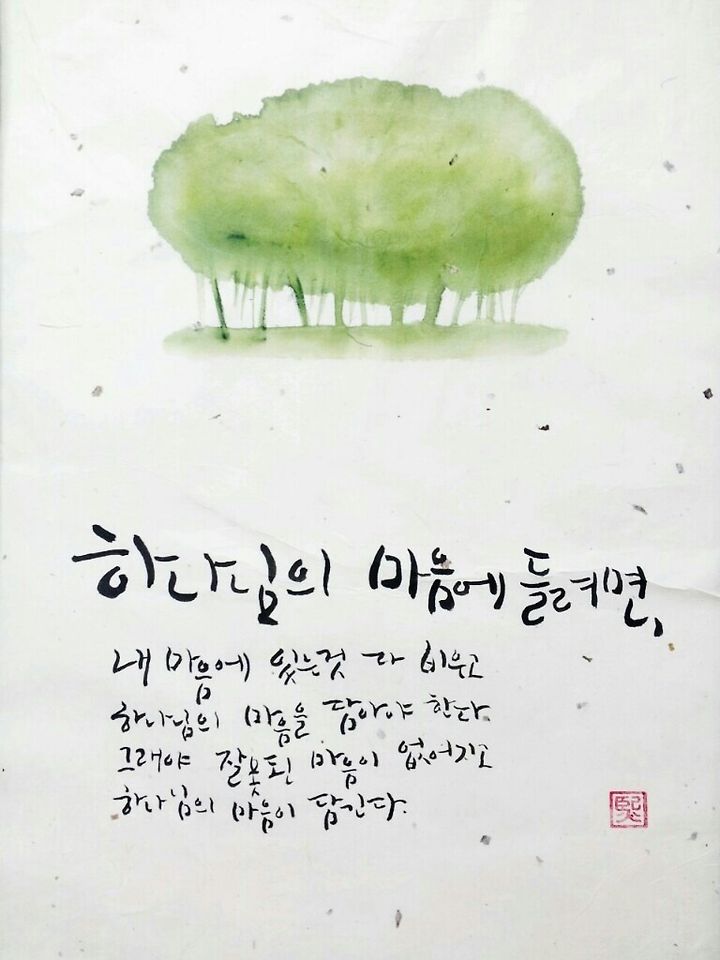 하나님의 마음에 들려면,
내 마음에 있는것 다 비우고
하나님의 마음을 담아야 한다.
그래야 잘못된 마음이 없어지고
하나님의 마음이 담긴다.
熙